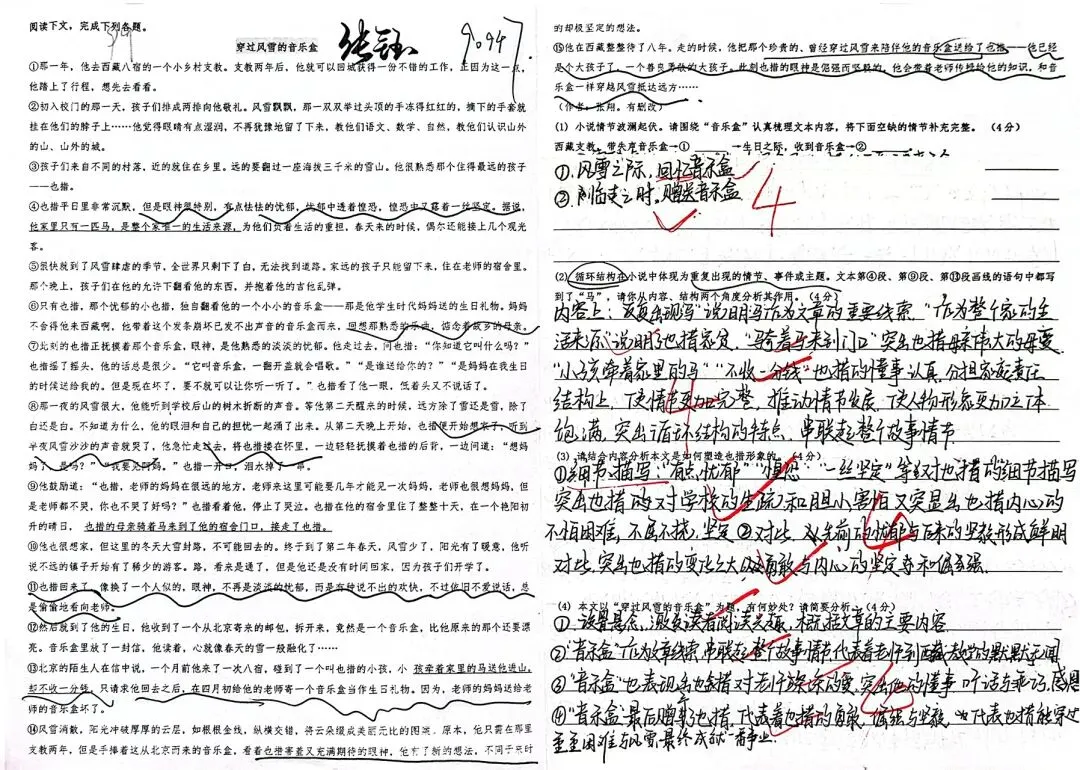 阅读下文，完成下列各题。
穿过风雪的音乐盒
张钰
9094
①那一年，他去西藏八宿的一个小乡村支教。支教两年后，他就可以回城获得一份不错的工作，正因为这一点，
他踏上了行程，想先去看看。
②初入校门的那一天，孩子们排成两排向他敬礼。风雪飘飘，那一双双举过头顶的手冻得红红的，摘下的手套就
挂在他们的脖子上……他觉得眼睛有点湿润，不再犹豫地留了下来，教他们语文、数学、自然，教他们认识山外
的山、山外的城。
③孩子们来自不同的村落，近的就住在乡里。远的要翻过一座海拔三千米的雪山。他很熟悉那个住得最远的孩子
——也措。
④也措平日里非常沉默，但是眼神很特别，有点怯怯的忧郁，忧郁中透着惶恐，惶恐中又藏着一丝坚定。据说，
他家里只有一匹马，是整个家唯一的生活来源，为他们负着生活的重担，春天来的时候，偶尔还能接上几个观光
客。
⑤很快就到了风雪肆虐的季节，全世界只剩下了白，无法找到道路。家远的孩子只能留下来，住在老师的宿舍里。
那个晚上，孩子们在他的允许下翻看他的东西，并抱着他的吉他乱弹。
⑥只有也措，那个忧郁的小也措，独自翻看他的一个小小的音乐盒——那是他学生时代妈妈送的生日礼物。妈妈
不舍得他来西藏啊，他带着这个发条崩坏已发不出声音的音乐盒而来，回想那熟悉的乐曲，惦念着故乡的母亲。
⑦此刻的也措正抚摸着那个音乐盒，眼神，是他熟悉的淡淡的忧郁。他走过去，问也措：“你知道它叫什么吗？”
也措摇了摇头，他的话总是很少。“它叫音乐盒，一翻开盖就会唱歌。”“是谁送给你的？”“是妈妈在我生日
的时候送给我的。但是现在坏了，要不就可以让你听一听了。”也措看了他一眼，低着头又不说话了。
⑧那一夜的风雪很大，他能听到学校后山的树木折断的声音。等他第二天醒来的时候，远方除了雪还是雪，除了
白还是白。不知道为什么，他的眼泪和自己的担忧一起涌了出来。从第二天晚上开始，也措便开始想家了，听到
半夜风雪沙沙的声音就哭了，他急忙走过去，将也措搂在怀里，一边轻轻抚摸着也措的后背，一边问道：“想妈
妈了，是吗？”“我要见阿妈。”也措一开口，泪水掉了一串。
⑨他鼓励道：“也措，老师的妈妈在很远的地方，老师来这里可能要几年才能见一次妈妈，老师也很想妈妈，但
是老师都不哭，你也不哭了好吗？”也措看着他，停止了哭泣。也措在他的宿舍里住了整整十天，在一个艳阳初
升的晴日，也措的母亲骑着马来到了他的宿舍门口，接走了也措。
⑩他也很想家，但这里的冬天大雪封路，不可能回去的。终于到了第二年春天，风雪少了，阳光有了暖意，他听
说不远的镇子开始有了稀少的游客。路，看来是通了，但是他还是没有时间回家，因为孩子们开学了。
⑪也措回来了，像换了一个人似的，眼神，不再是淡淡的忧郁，而是有种说不出的欢快，不过依旧不爱说话，总
是偷偷地看向老师。
⑫然后就到了他的生日，他收到了一个从北京寄来的邮包，拆开来，竟然是一个音乐盒，比他原来的那个还要漂
亮。音乐盒里放了一封信，他读着，心就像春天的雪一般融化了……
⑬北京的陌生人在信中说，一个月前他来了一次八宿，碰到了一个叫也措的小孩，小孩牵着家里的马送他进山，
却不收一分钱，只请求他回去之后，在四月初给他的老师寄一个音乐盒当作生日礼物。因为，老师的妈妈送给老
师的音乐盒坏了。
⑭风雪消散，阳光冲破厚厚的云层，如根根金线，纵横交错，将云朵缀成美丽无比的图案。原本，他只需在那里
支教两年，但是手捧着这从北京而来的音乐盒，看着也措害羞又充满期待的眼神，他有了新的想法，不同于来时
的却极坚定的想法。
⑮他在西藏整整待了八年。走的时候，他把那个珍贵的、曾经穿过风雪来陪伴他的音乐盒送给了也措——他已经
是个大孩子了，一个善良勇敢的大孩子。此刻也措的眼神是倔强而坚毅的，他会带着老师传授给他的知识，和音
乐盒一样穿越风雪抵达远方……
（作者：张翔。有删改）
（1）小说情节波澜起伏。请围绕“音乐盒”认真梳理文本内容，将下面空缺的情节补充完整。（4分）
西藏支教，带失声音乐盒→①→生日之际，收到音乐盒→②
①风雪之际，回忆音乐盒
②别临走之时，赠送音乐盒
4
（2）循环结构在小说中体现为重复出现的情节、事件或主题。文本第④段、第⑨段、第⑬段画线的语句中都写
到了“马”，请你从内容、结构两个角度分析其作用。（4分）
内容上：反复出现写“说明马作为文章的重要线索，“作为整个家的生
活来源”说明了也措家贫，“骑着马来到门口”突出也措母亲伟大的母爱
“小孩牵着家里的马”“不收一分钱”也措的懂事认真，分担家庭责任
结构上，使情节更加完整，推动情节发展，使人物形象更加立体
饱满，突出循环结构的特点，串联起整个故事情节
4
（3）请结合内容分析本文是如何塑造也措形象的。（4分）
①细节描写，“有点忧郁”“惶恐”“一丝坚定”等到对也措的细节描写
突出也措的对学校的生疏和胆小害怕又突显出也措内心的
不怕困难，不屈不挠，坚定②对比，从先前的忧郁与后来的坚毅形成鲜明
对比，突出也措的变化之大及勇敢与内心的坚定善和倔强。
（4）本文以“穿过风雪的音乐盒”为题，有何妙处？请简要分析。（4分）
①设置悬念，激发读者阅读兴趣，概括文章的主要内容
②“音乐盒”作为文章线索，串联起整个故事情节，代表着老师到西藏教学的默默无闻
③“音乐盒”也表现出也措对老师深深的爱，突出他的懂事听话与乖巧，感恩
④“音乐盒”最后赠给也措，代表着也措的勇敢，倔强与坚毅，也代表也措能穿过
重重困难与风雪最终成就一番事业.